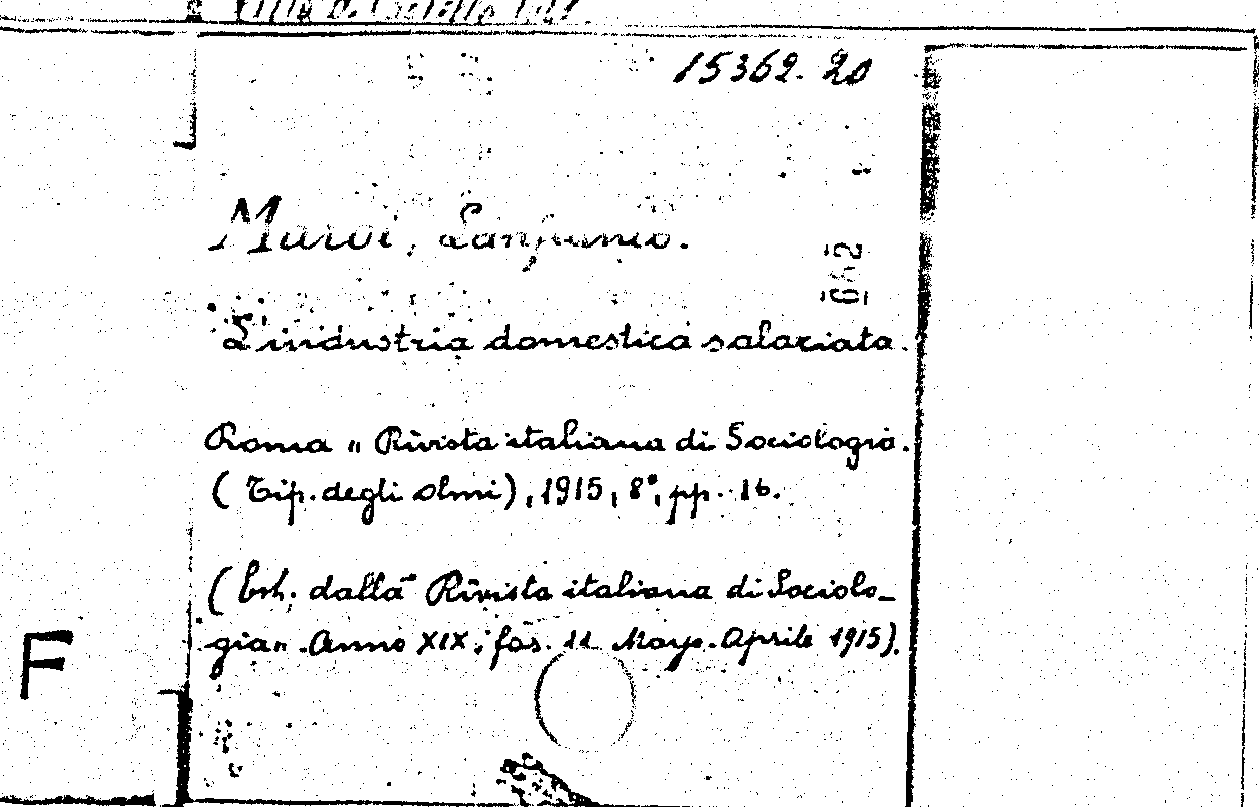 15362. 20
Maroi, Lanfranco.
L'industria domestica salariata.
Roma „ Rivista italiana di Sociologia.
( Tip. degli Olmi), 1915, 8°, pp. 16.
( Estr. dalla " Rivista italiana di Sociolo-
gia„ . Anno XIX, fas. 11 Marzo. Aprile 1915).
F